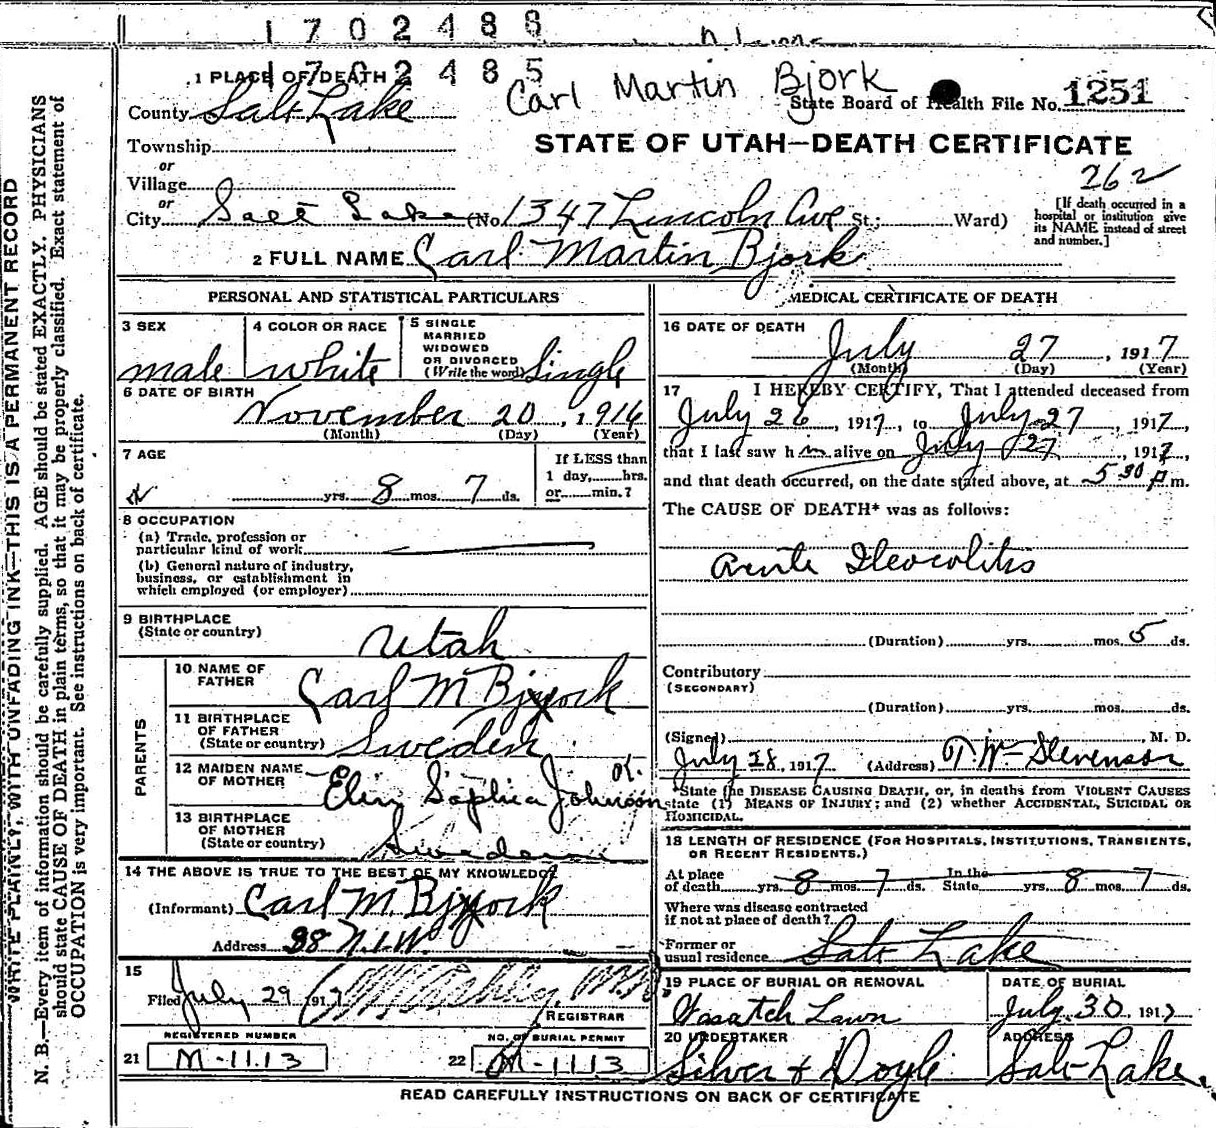 1702488
1702485
Carl Martin Bjork
1 PLACE OF DEATH
County Salt Lake
State Board of Health File No. 1251
Township
STATE OF UTAH—DEATH CERTIFICATE
or
Village
262
or
City Salt Lake (No. 1347 Lincoln Ave St.; Ward)
[If death occurred in a
hospital or institution give
its NAME instead of street
and number.]
2 FULL NAME Carl Martin Bjork
PERSONAL AND STATISTICAL PARTICULARS
3 SEX
male
4 COLOR OR RACE
white
5 SINGLE
MARRIED
WIDOWED
OR DIVORCED
(Write the word) Single
6 DATE OF BIRTH
November 20, 1916
(Month) (Day) (Year)
7 AGE
yrs. 8 mos. 7 ds.
If LESS than
1 day, hrs.
or min.?
8 OCCUPATION
(a) Trade, profession or
particular kind of work
(b) General nature of industry,
business, or establishment in
which employed (or employer)
9 BIRTHPLACE
(State or country)
Utah
PARENTS
10 NAME OF
FATHER
Carl M Bjork
11 BIRTHPLACE
OF FATHER
(State or country) Sweden
12 MAIDEN NAME
OF MOTHER
Elin Sophia Johnson
13 BIRTHPLACE
OF MOTHER
(State or country) Sweden
14 THE ABOVE IS TRUE TO THE BEST OF MY KNOWLEDGE
(Informant) Carl M Bjork
Address
15
Filed July 29 1917
REGISTRAR
REGISTERED NUMBER
21 M-1113
NO. OF BURIAL PERMIT
22 M-1113
MEDICAL CERTIFICATE OF DEATH
16 DATE OF DEATH
July 27, 1917
(Month) (Day) (Year)
17 I HEREBY CERTIFY, That I attended deceased from
July 26, 1917, to July 27, 1917,
that I last saw h im alive on July 27, 1917,
and that death occurred, on the date stated above, at 5 30 P.m.
The CAUSE OF DEATH* was as follows:
Acute Ileocolitis
(Duration) yrs. mos. 5 ds.
Contributory
(SECONDARY)
(Duration) yrs. mos. ds.
(Signed) M. D.
July 28, 1917 (Address) T. W. Stevenson
*State the DISEASE CAUSING DEATH, or, in deaths from VIOLENT CAUSES
state (1) MEANS OF INJURY; and (2) whether ACCIDENTAL, SUICIDAL OR
HOMICIDAL.
18 LENGTH OF RESIDENCE (FOR HOSPITALS, INSTITUTIONS, TRANSIENTS,
OR RECENT RESIDENTS.)
At place
of death yrs. 8 mos. 7 ds. In the
State yrs. 8 mos. 7 ds.
Where was disease contracted
if not at place of death?
Former or
usual residence Salt Lake
19 PLACE OF BURIAL OR REMOVAL
Wasatch Lawn
DATE OF BURIAL
July 30, 1917
20 UNDERTAKER
Silver & Doyle
ADDRESS
Salt Lake
READ CAREFULLY INSTRUCTIONS ON BACK OF CERTIFICATE
WRITE PLAINLY, WITH UNFADING INK—THIS IS A PERMANENT RECORD
N. B.—Every item of information should be carefully supplied. AGE should be stated EXACTLY. PHYSICIANS
should state CAUSE OF DEATH in plain terms, so that it may be properly classified. Exact statement of
OCCUPATION is very important. See instructions on back of certificate.